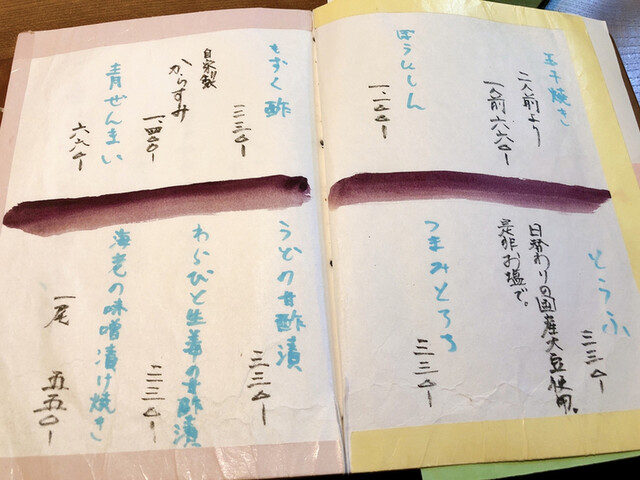 玉子焼き
二人前より
一人前六六〇ー
ぼうにしん
一、一〇〇ー
とうふ
三三〇ー
日替わりの国産大豆使用。
是非お塩で。
つまみとろろ
三三〇ー
もずく酢
自家製
からすみ
一、四〇〇ー
青ぜんまい
六六〇ー
うどの甘酢漬
三三〇ー
わらびと生姜の甘酢漬
三三〇ー
海老の味噌漬け焼き
一尾 五五〇ー